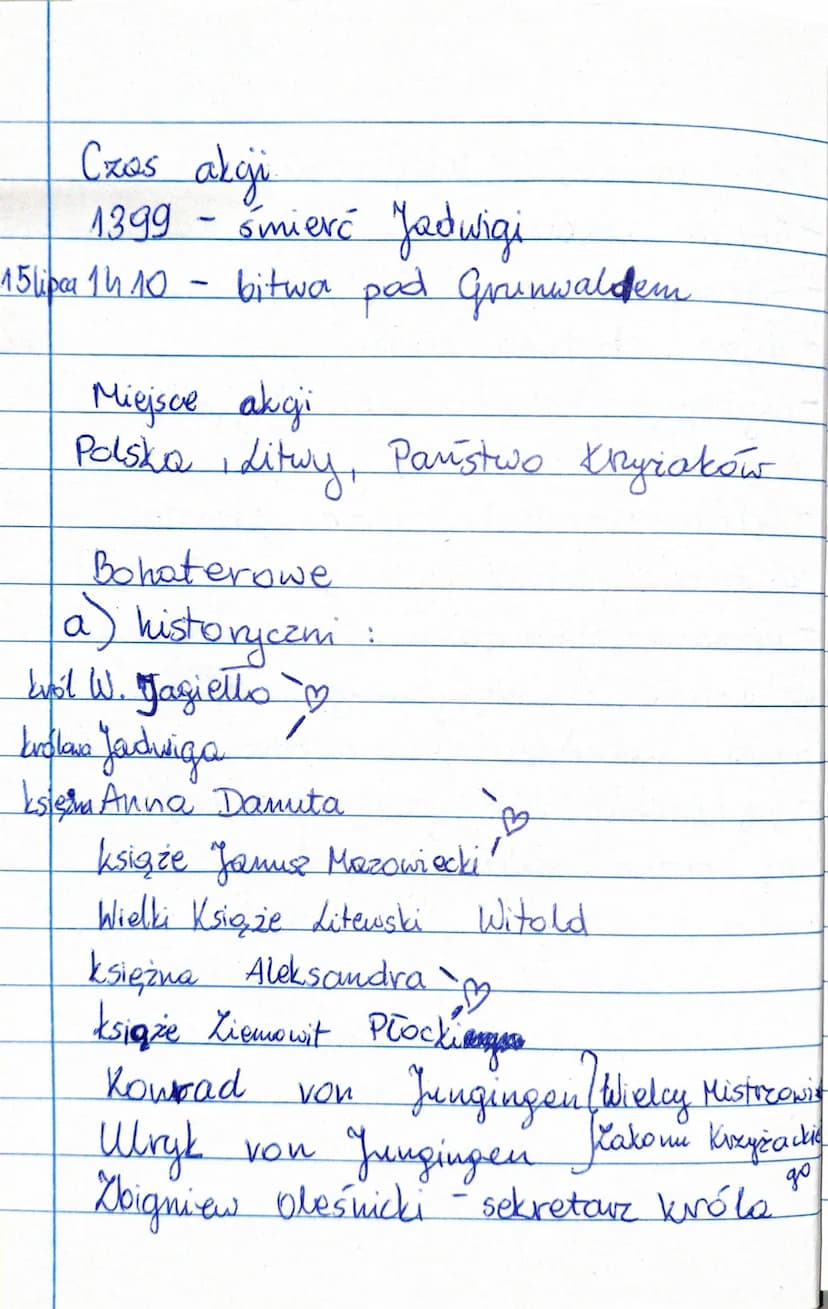 Czas akcji
1399 - śmierć Jadwigi
15 lipca 1410 - bitwa pod Grunwaldem
Miejsce akcji
Polska, Litwy, Państwo Krzyżaków
Bohaterowe
a) historyczni :
król W. Jagiełło
królowa Jadwiga
księżna Anna Danuta
książe Janusz Mazowiecki
Wielki Książe Litewski Witold
księżna Aleksandra
książe Ziemowit Płocki
Konrad von Jungingen } Wielcy Mistrzowie
Ulryk von Jungingen } Zakonu Krzyżackiego
Zbigniew Oleśnicki - sekretarz króla